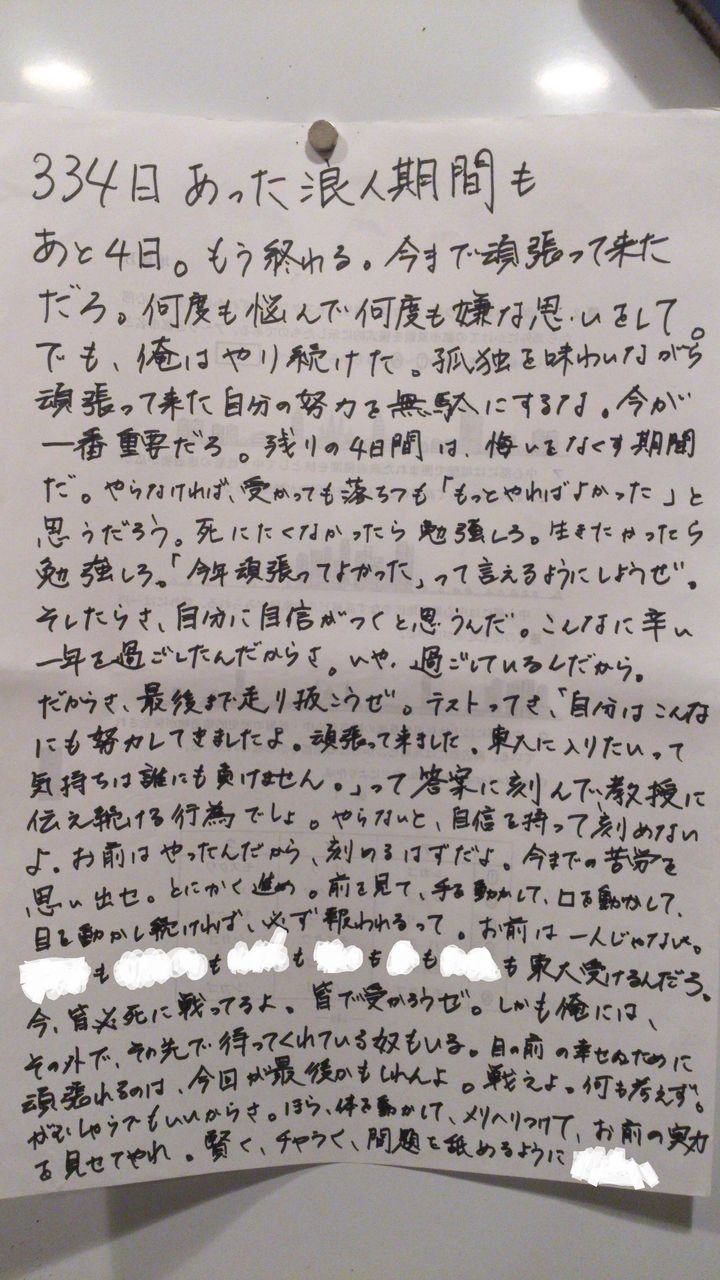 334日あった浪人期間も
あと4日。もう終わる。今まで頑張って来た
だろ。何度も悩んで何度も嫌な思いをして。
でも、俺はやり続けた。孤独を味わいながら
頑張って来た自分の努力を無駄にするな。今が
一番重要だろ。残りの4日間は、悔いをなくす期間
だ。やらなければ、受かっても落ちても「もっとやればよかった」と
思うだろう。死にたくなかったら勉強しろ。生きたかったら
勉強しろ。「今年頑張ってよかった」って言えるようにしようぜ。
そしたらさ、自分に自信がつくと思うんだ。こんなに辛い
一年を過ごしたんだからさ。いや、過ごしているんだから。
だからさ、最後まで走り抜こうぜ。テストってさ、「自分はこんな
にも努力してきましたよ。頑張って来ました。東大に入りたいって
気持ちは誰にも負けません。」って答案に刻んで、教授に
伝え続ける行為でしょ。やらないと、自信を持って刻めない
よ。お前はやったんだから、刻めるはずだよ。今までの苦労を
思い出せ。とにかく進め。前を見て、手を動かして、口を動かして、
目を動かし続ければ、必ず報われるって。お前は一人じゃない。
も も も も も も東大受けるんだろ。
今、皆必死に戦ってるよ。皆で受かろうぜ。しかも俺には、
その外で、その先で待ってくれている奴もいる。目の前の幸せのために
頑張れるのは、今回が最後かもしれんよ。戦えよ。何も考えず。
がむしゃらでもいいからさ。ほら、体を動かして、メリハリつけて、お前の実力
を見せてやれ。賢く、チャラく、問題を舐めるように